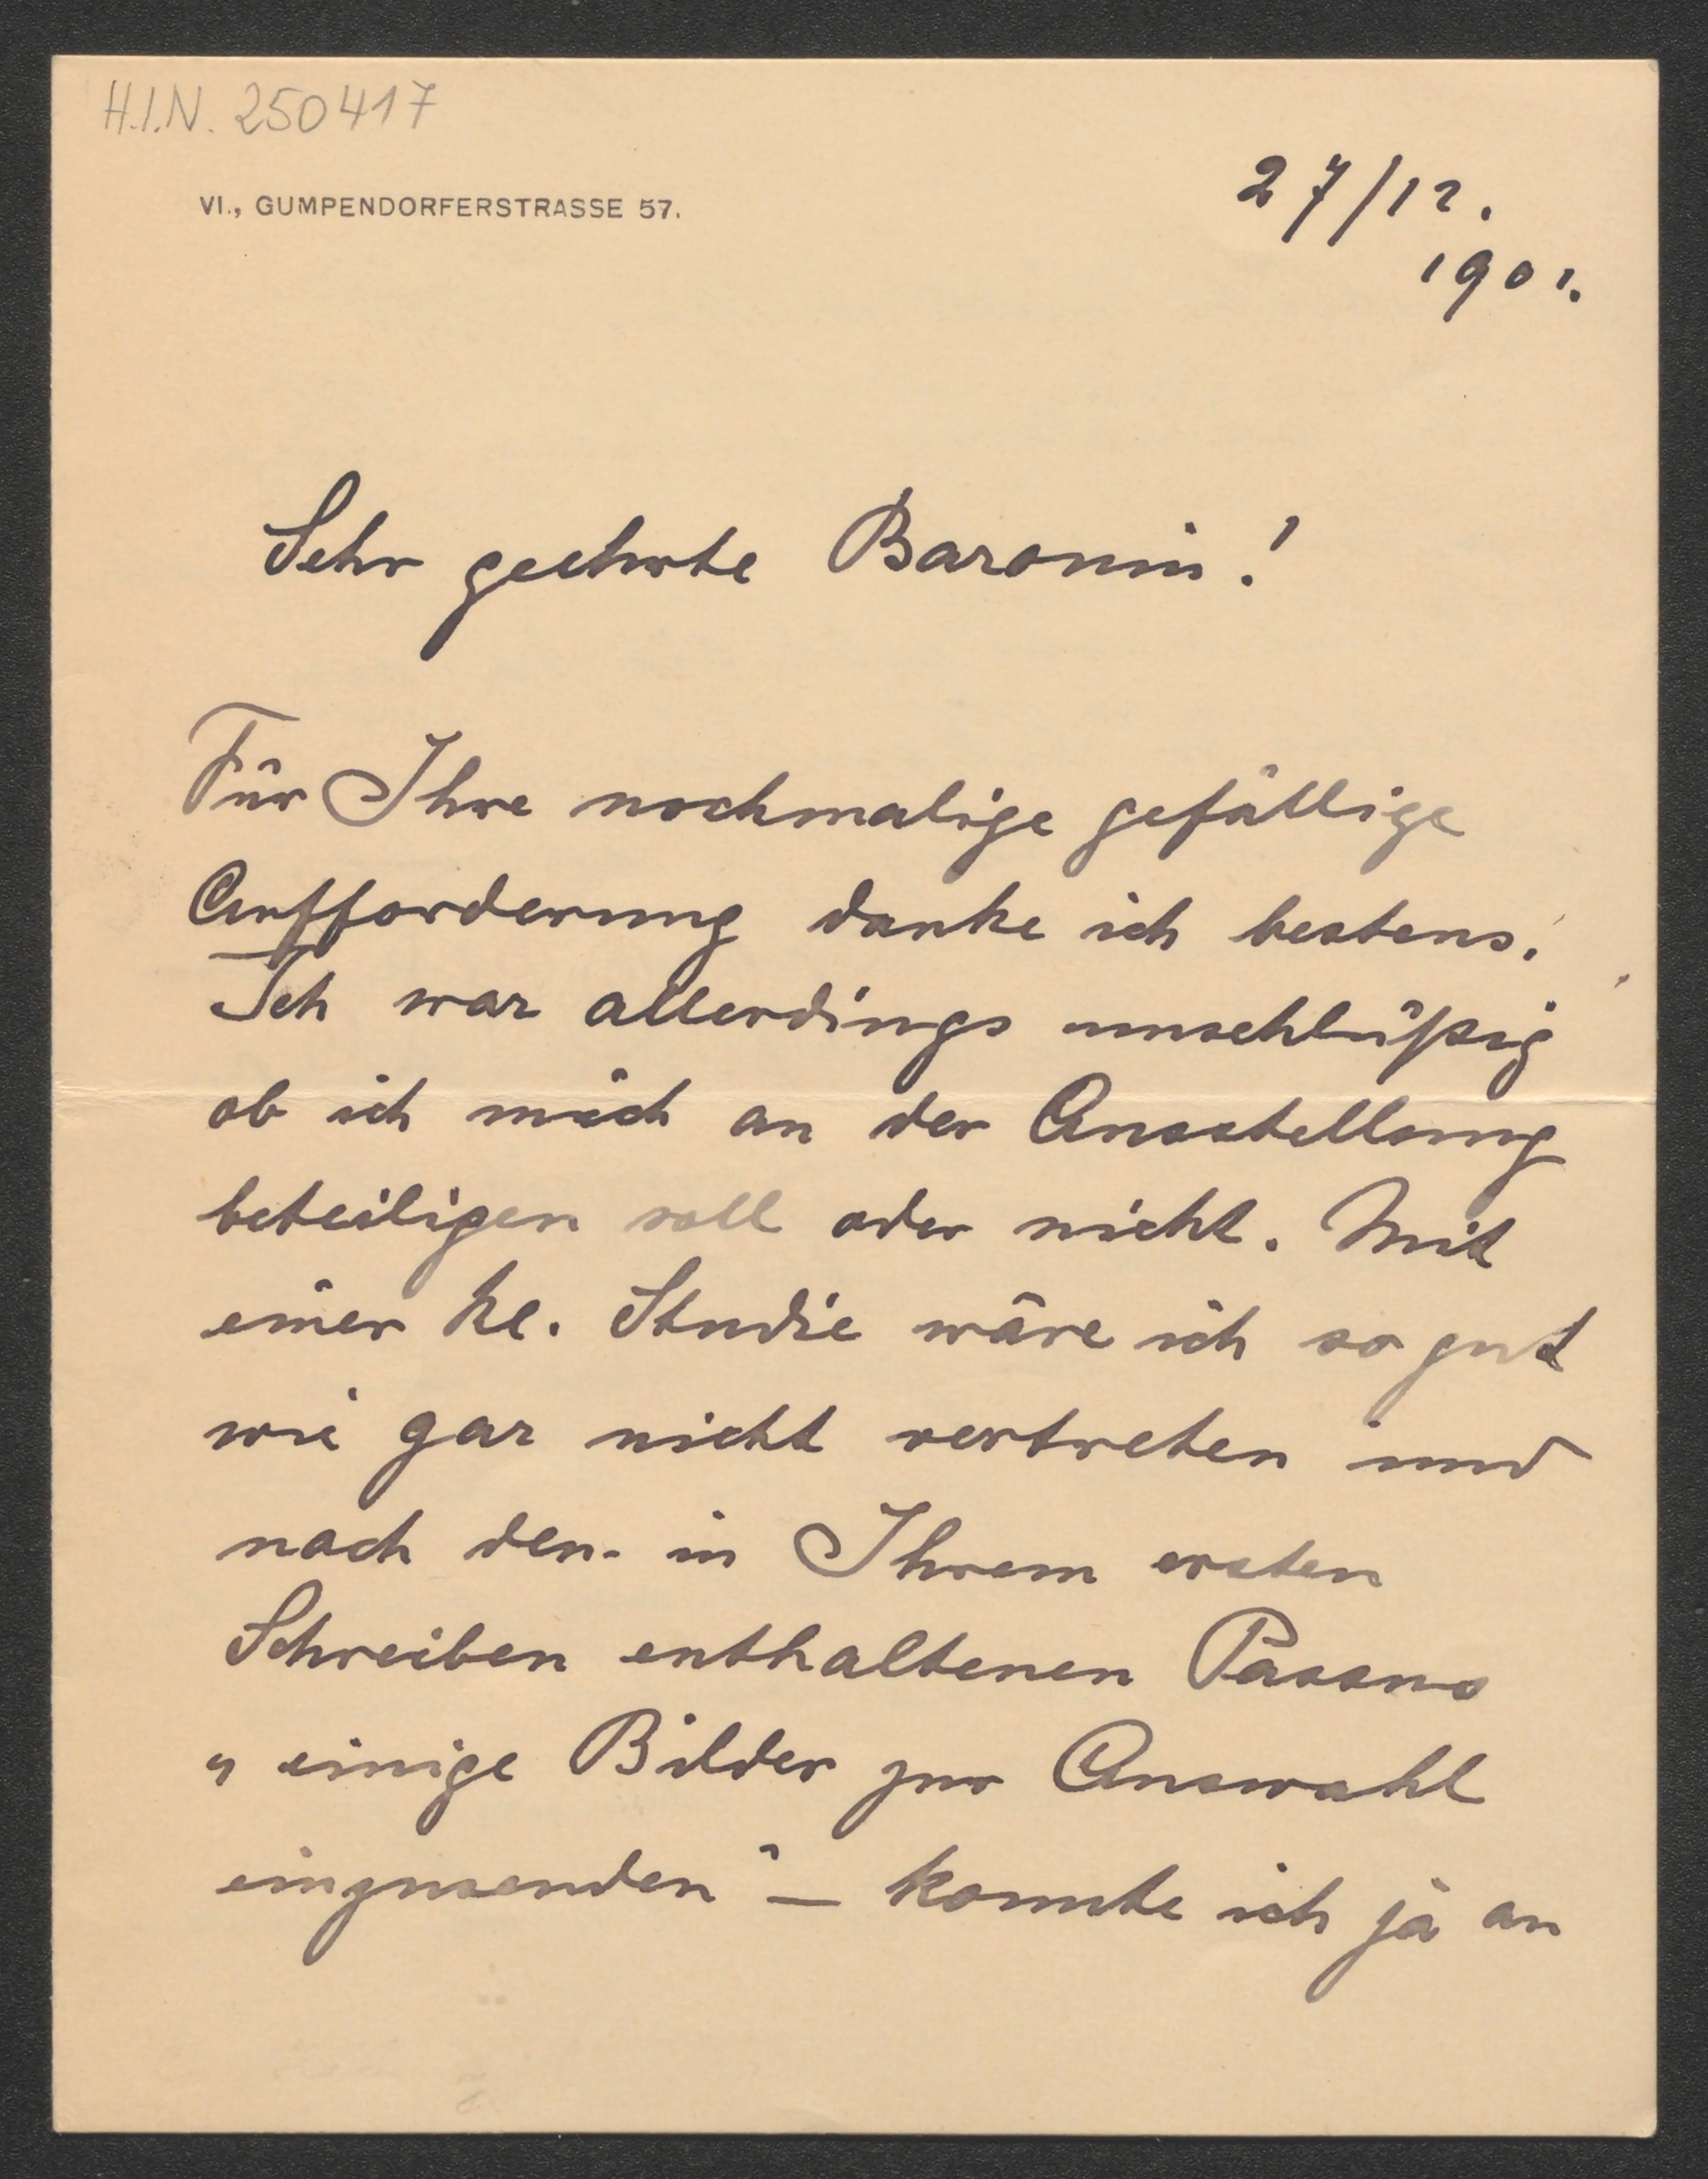 H.I.N. 250417
VI., GUMPENDORFERSTRASSE 57.
27/12.
1901.
Sehr geehrte Baronin!
Für Ihre nochmalige gefällige
Aufforderung danke ich bestens.
Ich war allerdings unschlüßig
ob ich mich an der Ausstellung
beteiligen soll oder nicht. Mit
einer kl. Studie wäre ich so gut
wie gar nicht vertreten und
nach den in Ihrem ersten
Schreiben enthaltenen Passus
„einige Bilder zur Auswahl
einzusenden" — konnte ich ja an